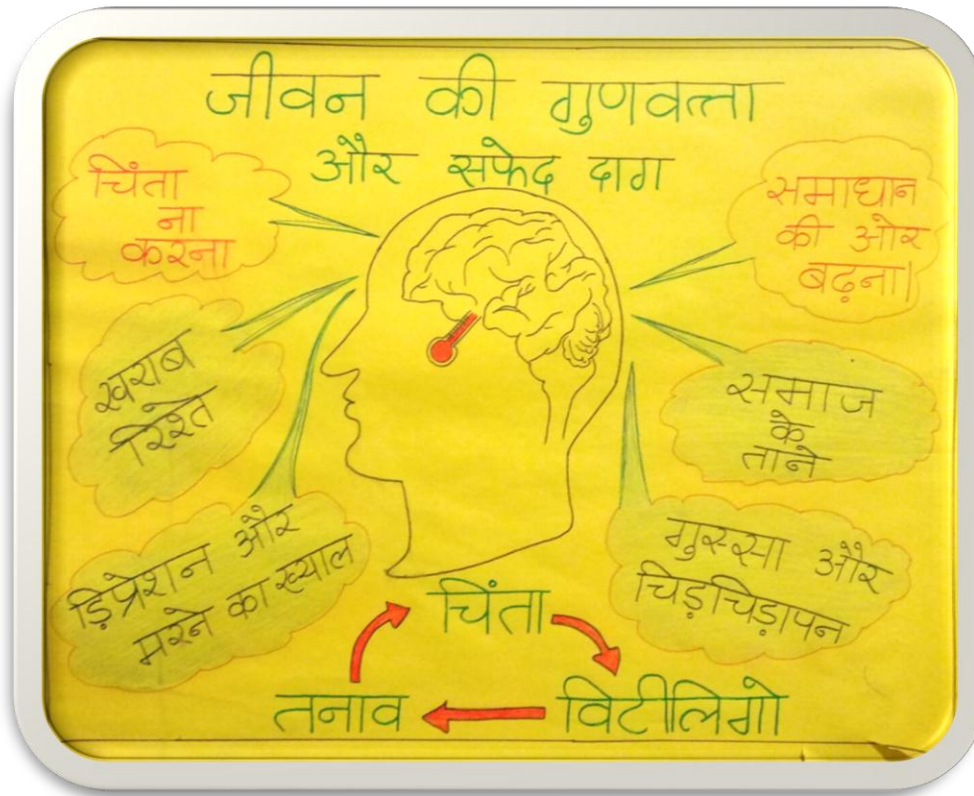 जीवन की गुणवत्ता
और सफेद दाग
चिंता
ना
करना
समाधान
की ओर
बढ़ना।
खराब
रिश्ते
समाज
के
ताने
ड़िप्रेशन और
मरने का ख्याल
गुस्सा और
चिड़चिड़ापन
चिंता
तनाव
विटीलिगो